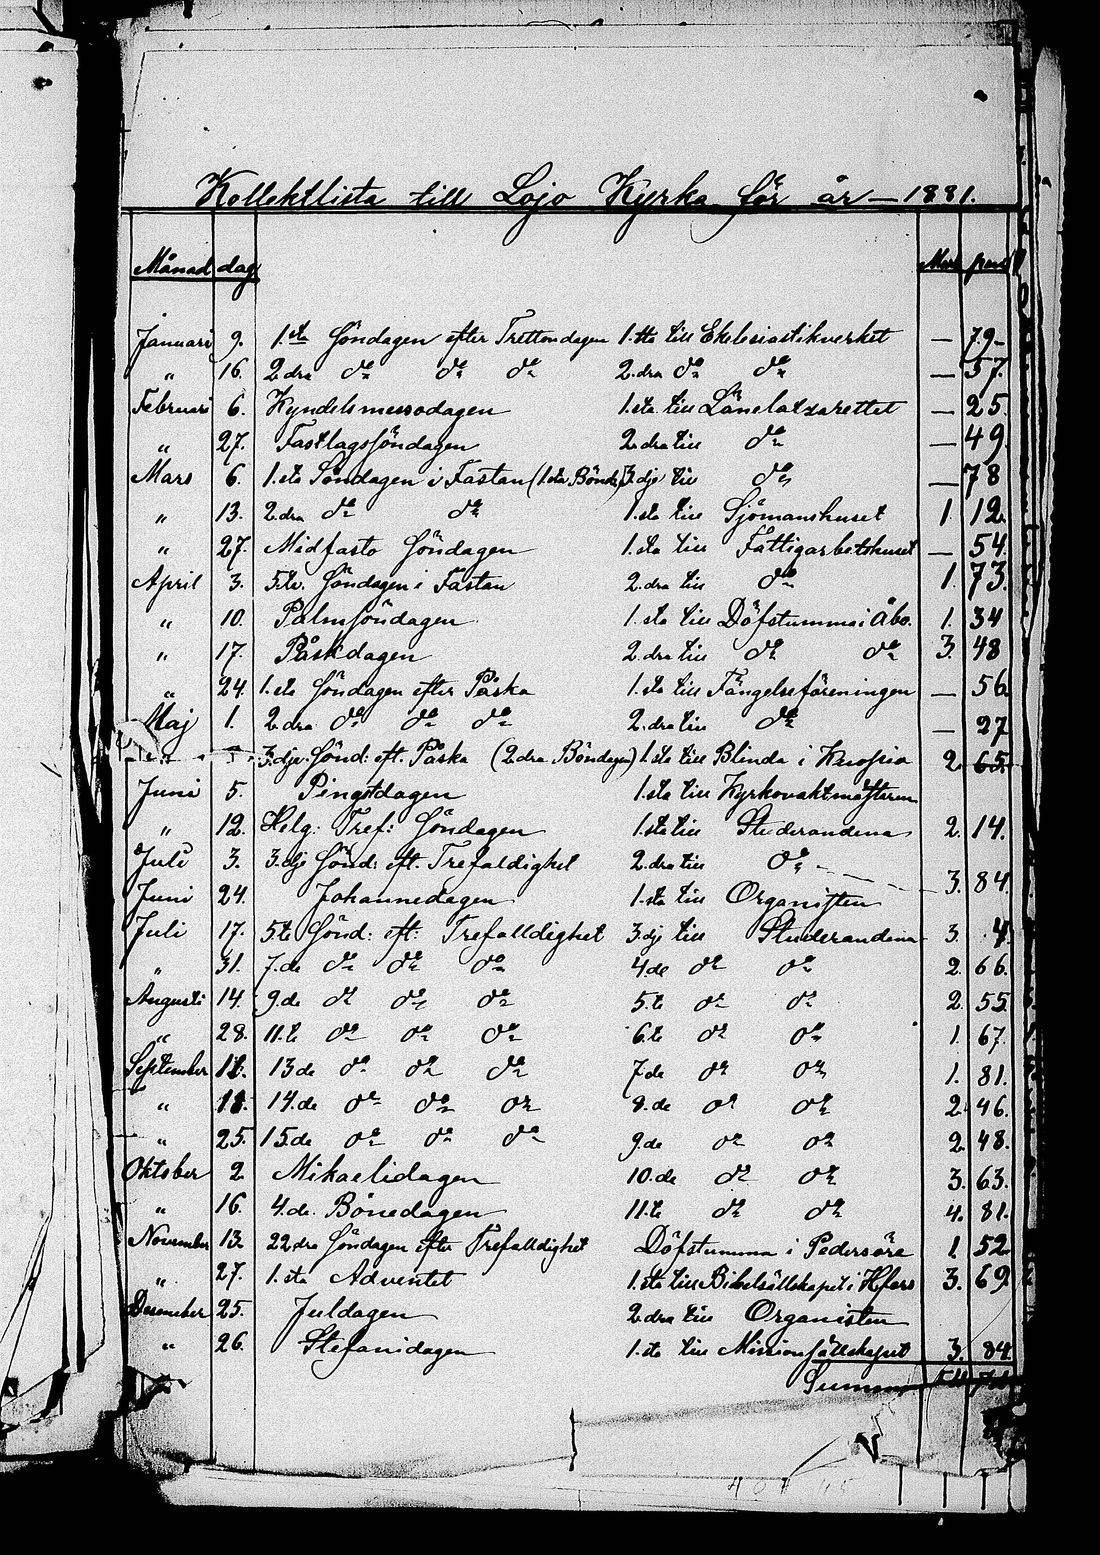 Kollektlista till Lojo Kyrka för år 1881.
Månad dag Mark penni
Januari 9. 1.sta Söndagen efter Trettondagen 1.sta till Eklesiastikverket — 79 -
„ 16. 2.dra do do do 2.dra do do — 57.
Februari 6. Kyndelsmessodagen 1.sta till Länelatzarettet — 25.
„ 27. Fastlagssöndagen 2.dra till do — 49.
Mars 6. 1.sta Söndagen i Fastan (1.sta Bönd.) 3.dje till do — 78
„ 13. 2.dra do do 1.sta till Sjömanshuset 1. 12.
„ 27. Midfasto Söndagen 1.sta till Fattigarbetshuset — 54.
April 3. 5.te. Söndagen i Fastan 2.dra till do 1. 73.
„ 10. Palmsöndagen 1.sta till Döfstumma i Åbo. 1. 34
„ 17. Påskdagen 2.dra till do do 3. 48
„ 24. 1.sta Söndagen efter Påska 1.sta till Fängelseföreningen — 56.
Maj 1. 2.dra do do do 2.dra till do — 27
„ 3.dje Sönd: eft. Påska (2.dra Böndagen) 1.sta till Blinda i Kuopio 2. 65.
Juni 5. Pingstdagen 1.sta till Kyrkovaktmästaren
„ 12. Helg: Tref: Söndagen 1.sta till Studerandena 2. 14.
Juli 3. 3.dje Sönd: eft. Trefaldighet 2.dra till do 3. 84.
Juni 24. Johannedagen 1.sta till Organisten
Juli 17. 5.te Sönd: eft: Trefalldighet 3.dje till Studerandena 3. 4.
„ 31. 7.de do do do 4.de do do 2. 66.
Augusti 14. 9.de do do do 5.te do do 2. 55.
„ 28. 11.te do do do 6.te do do 1. 67.
September 13.de do do do 7.de do do 1. 81.
„ 14.de do do do 8.de do do 2. 46.
„ 25. 15.de do do do 9.de do do 2. 48.
Oktober 2. Mikaelidagen 10.de do do 3. 63.
„ 16. 4.de. Bönedagen 11.te do do 4. 81.
November 13. 22.dra Söndagen efter Trefalldighet Döfstumma i Pedersöre 1. 52.
„ 27. 1.sta Adventet 1.sta till Bibelsällskapet i Hfors 3. 69.
Desember 25. Juldagen 2.dra till Organisten
„ 26. Stefanidagen 1.sta till Missionssällskapet 3. 84.
Summa